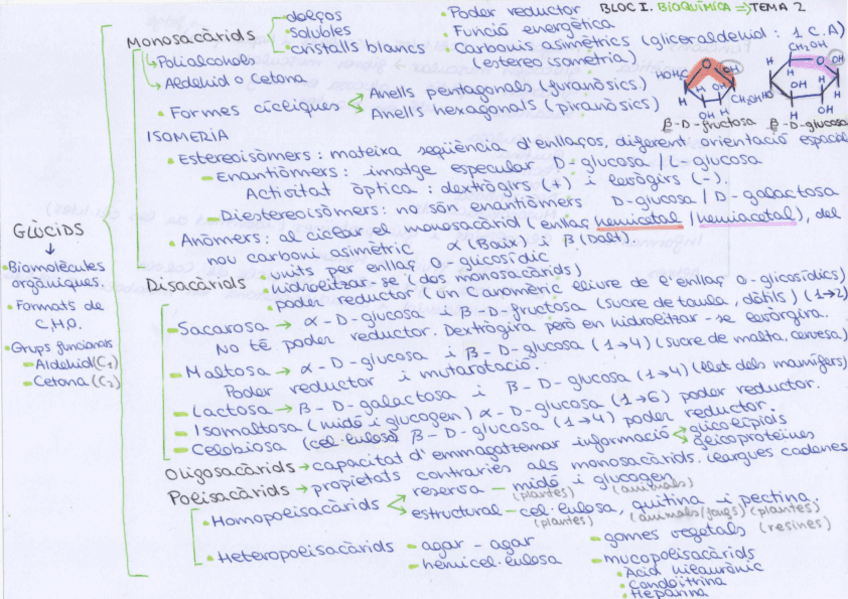 BLOC I. BIOQUÍMICA ⇒ TEMA 2
GLÚCIDS
• Biomolècules orgàniques.
• Formats de C,H,O.
• Grups funcionals
- Aldehid (C1)
- Cetona (C2)
Monosacàrids
- dolços
- solubles
- cristalls blancs
• Poder reductor
• Funció energètica
• Carbonis asimètrics (gliceraldehid: 1 C.A)
(estereoisometria)
Polialcohols
Aldehid o Cetona
• Formes cícliques
Anells pentagonals (furanòsics).
Anells hexagonals (piranòsics)
HOH2C O OH H H CH2OH OH H
β-D-fructosa
CH2OH O OH H H OH H HO H OH
β-D-glucosa
ISOMERIA
• Estereoisòmers: mateixa seqüència d'enllaços, diferent orientació espacial
- Enantiòmers: imatge especular D-glucosa / L-glucosa
Activitat òptica: dextrògirs (+) i levògirs (-).
- Diestereoisòmers: no són enantiòmers D-glucosa / D-galactosa
• Anòmers: al ciclar el monosacàrid (enllaç hemicetal / hemiacetal), del
nou carboni asimètric α (Baix) i β (Dalt).
Disacàrids
• units per enllaç O-glicosídic
• hidrolitzar-se (dos monosacàrids)
• poder reductor (un C anomèric lliure de l'enllaç O-glicosídics)
- Sacarosa → α-D-glucosa i β-D-fructosa (sucre de taula, dàtils) (1→2)
No té poder reductor. Dextrògira però en hidrolitzar-se levògira.
- Maltosa → α-D-glucosa i β-D-glucosa (1→4) (sucre de malta, cervesa)
Poder reductor i mutarotació.
- Lactosa → β-D-galactosa i β-D-glucosa (1→4) (llet dels mamífers)
- Isomaltosa (midó i glucogen) α-D-glucosa (1→6) poder reductor.
- Celobiosa (cel·lulosa) β-D-glucosa (1→4) poder reductor.
Oligosacàrids → capacitat d'emmagatzemar informació
glicolípids
glicoproteïnes
Polisacàrids → propietats contràries als monosacàrids. Llargues cadenes
• Homopolisacàrids
reserva - midó i glucogen
(plantes) (animals)
estructural - cel·lulosa, quitina i pectina.
(plantes) (animals/fongs) (plantes)
• Heteropolisacàrids
- agar-agar
- hemicel·lulosa
- gomes vegetals (resines)
- mucopolisacàrids
• Àcid hialurònic
• Condoitrina
• Heparina